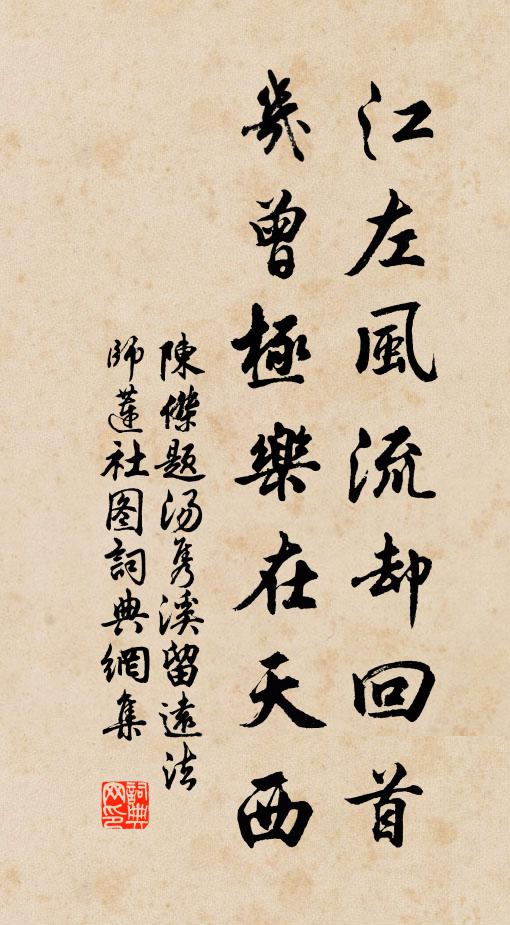 江左風流却回首
幾曾極樂在天西
陳傑題湯隽溪留遠法
師蓮社图詞典網集
詞典网印